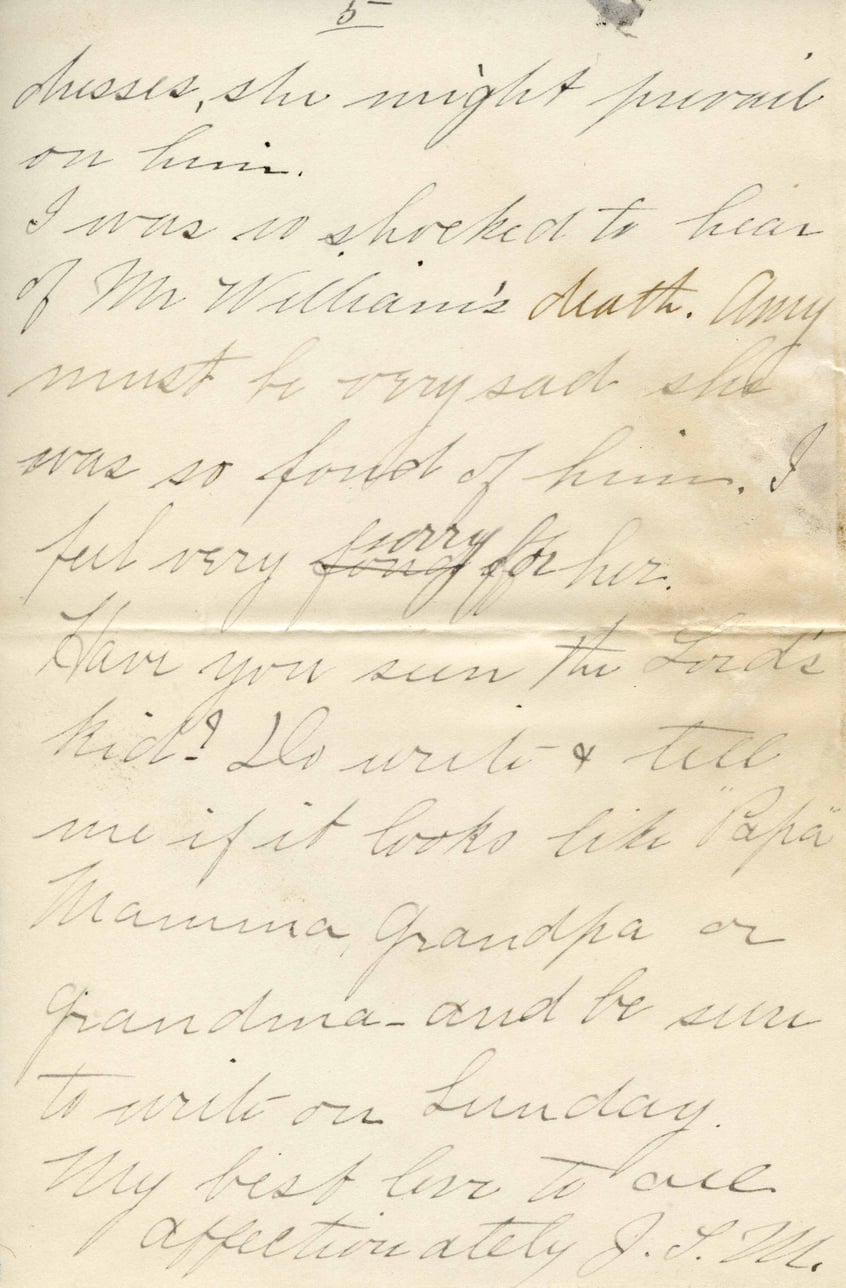 5
dresses, she might prevail
on him.
I was so shocked to hear
of Mr William's death. Amy
must be very sad she
was so fond of him. I
feel very fond sorry for her.
Have you seen the Lord's
kid? Do write & tell
me if it looks like "Papa"
Mamma, Grandpa or
grandma - and be sure
to write on Sunday.
My best love to all
affectionately J. S. M.